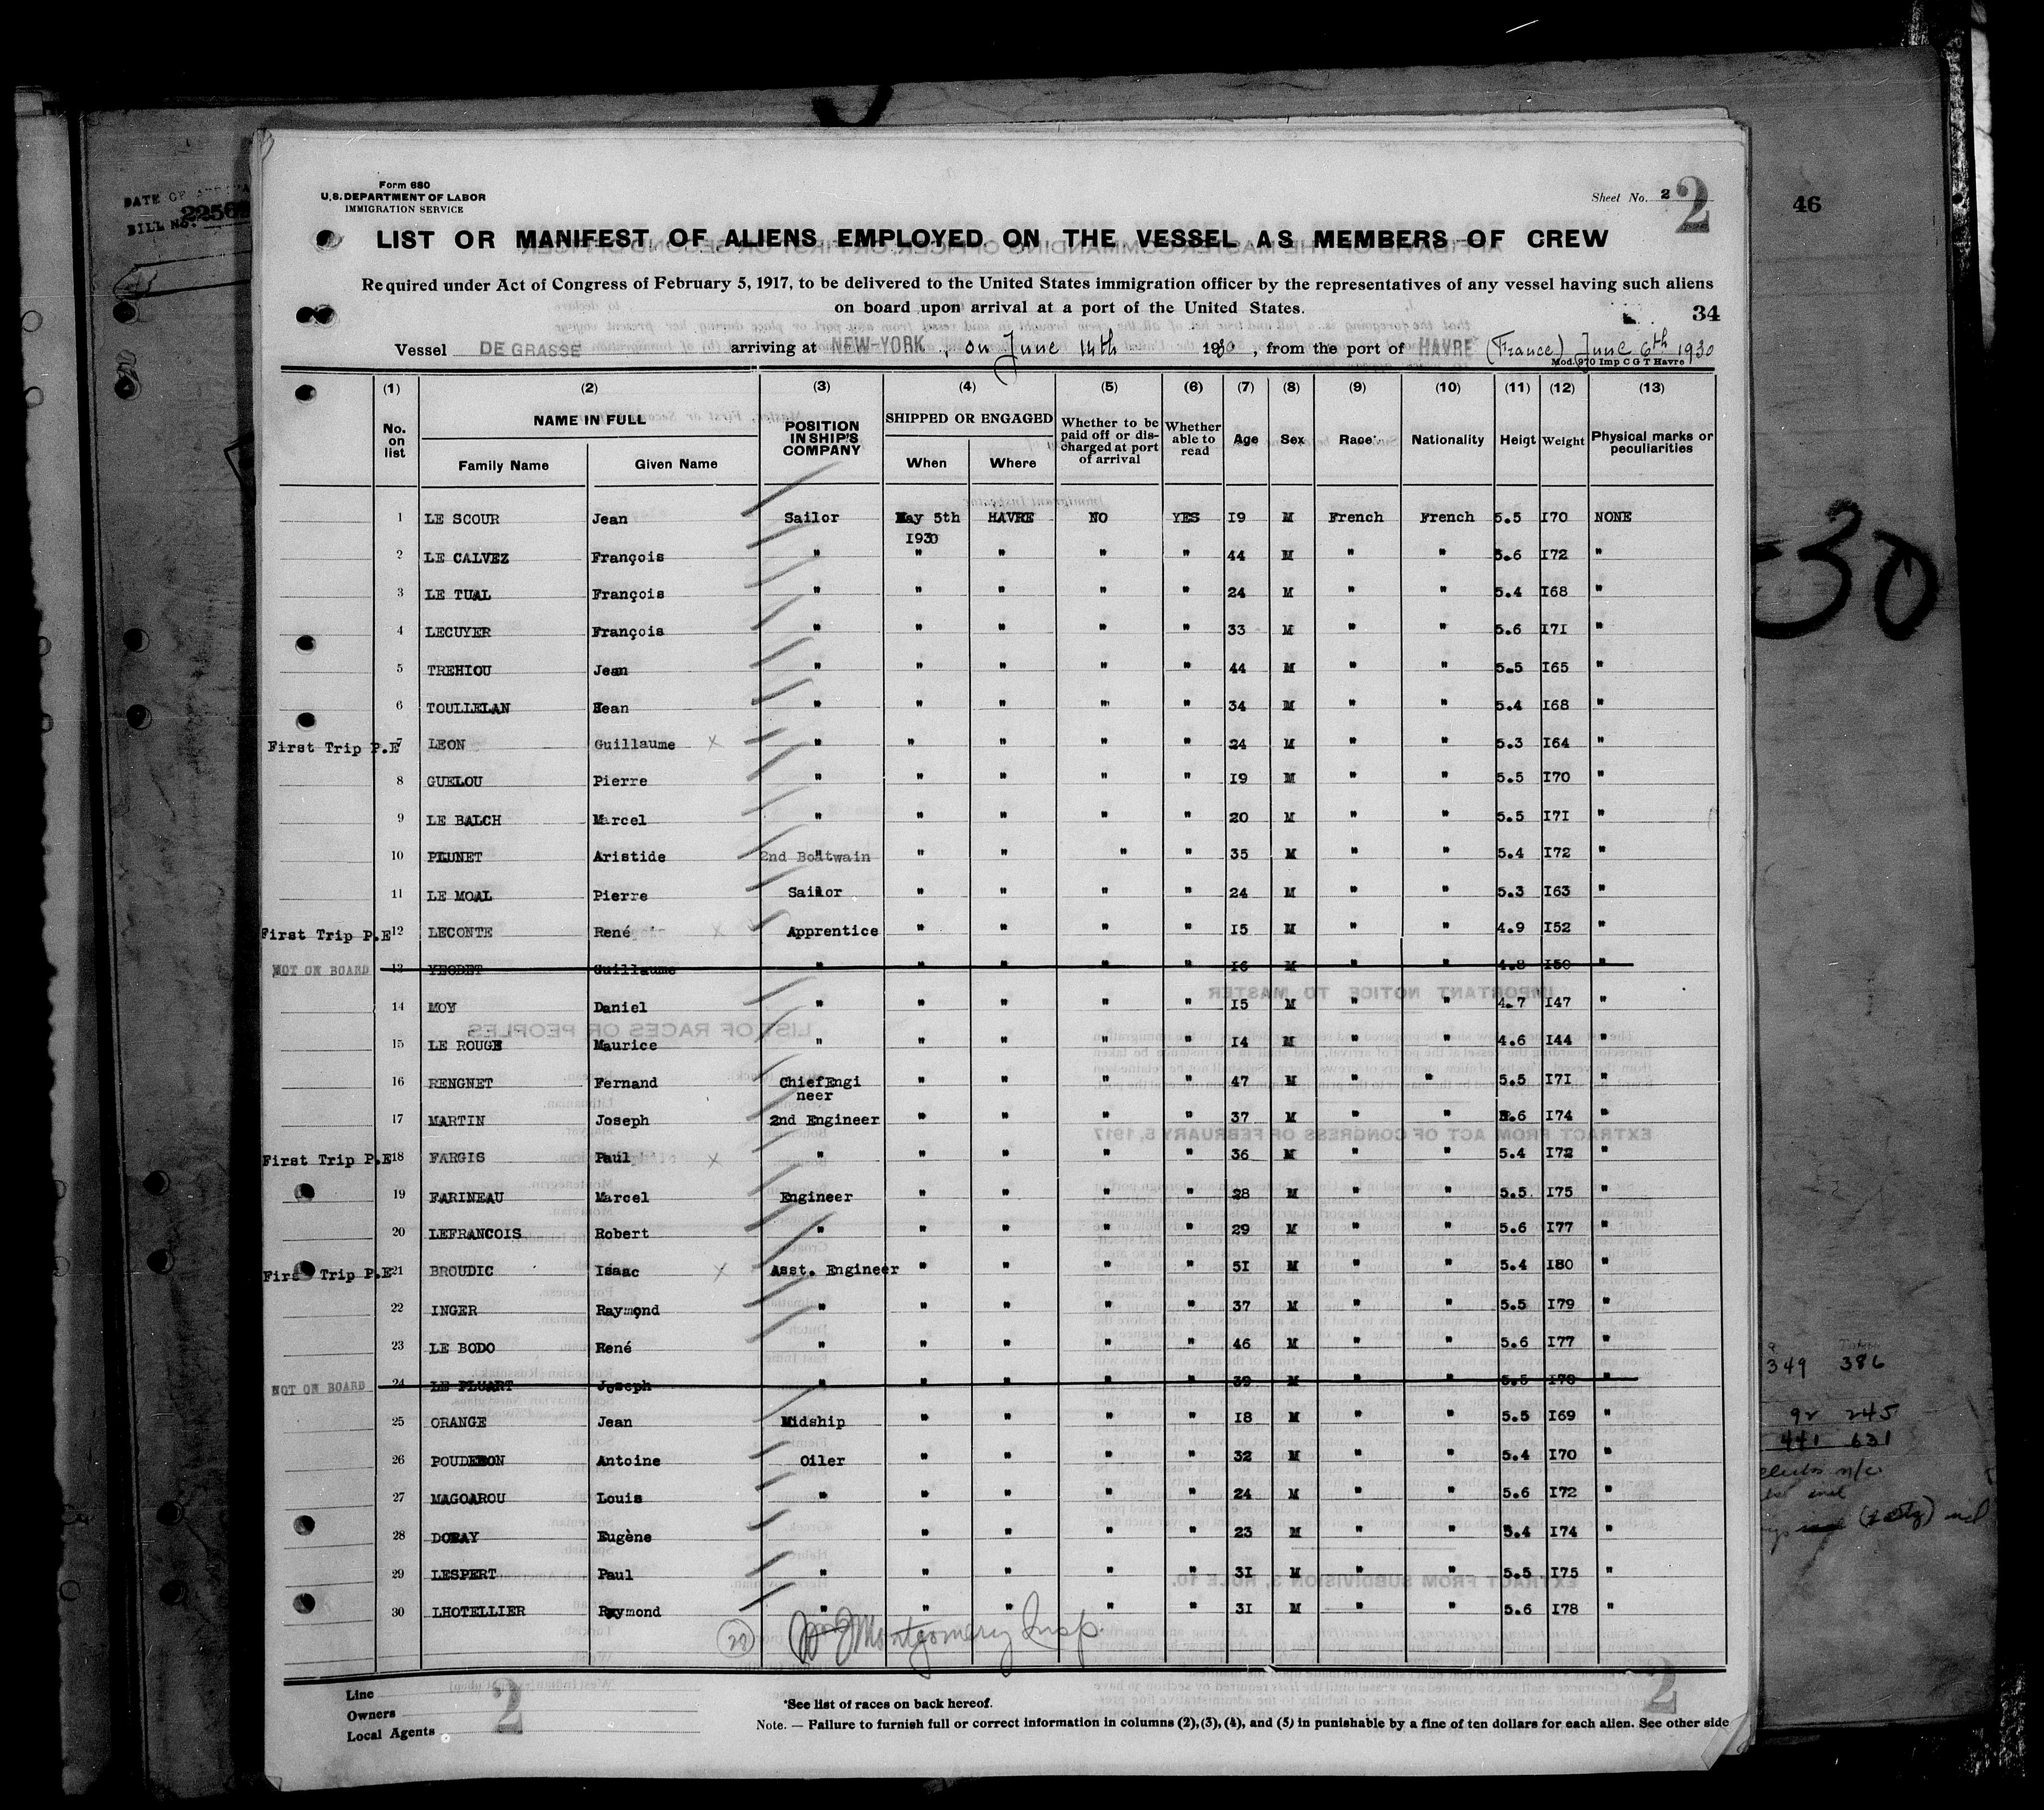 Form 680
U.S. DEPARTMENT OF LABOR
IMMIGRATION SERVICE
Sheet No. 2
2
46
LIST OR MANIFEST OF ALIENS EMPLOYED ON THE VESSEL AS MEMBERS OF CREW
Required under Act of Congress of February 5, 1917, to be delivered to the United States immigration officer by the representatives of any vessel having such aliens
on board upon arrival at a port of the United States.
34
Vessel DE GRASSE arriving at NEW-YORK, on June 14th 1930, from the port of HAVRE (France) June 6th 1930
Mod. 970 Imp C G T Havre
(1) (2) (3) (4) (5) (6) (7) (8) (9) (10) (11) (12) (13)
No. on list NAME IN FULL Family Name Given Name POSITION IN SHIP'S COMPANY SHIPPED OR ENGAGED When Where Whether to be paid off or discharged at port of arrival Whether able to read Age Sex Race* Nationality Heigt Weight Physical marks or peculiarities
1 LE SCOUR Jean Sailor May 5th 1930 HAVRE NO YES 19 M French French 5.5 170 NONE
2 LE CALVEZ François " " " " " 44 M " " 5.6 172 "
3 LE TUAL François " " " " " 24 M " " 5.4 168 "
4 LECUYER François " " " " " 33 M " " 5.6 171 "
5 TREHIOU Jean " " " " " 44 M " " 5.5 165 "
6 TOULLELAN Jean " " " " " 34 M " " 5.4 168 "
First Trip P.E 7 LEON Guillaume x " " " " " 24 M " " 5.3 164 "
8 GUELOU Pierre " " " " " 19 M " " 5.5 170 "
9 LE BALCH Marcel " " " " " 20 M " " 5.5 171 "
10 PLUNET Aristide 2nd Boatwain " " " " 35 M " " 5.4 172 "
11 LE MOAL Pierre Sailor " " " " 24 M " " 5.3 163 "
First Trip P.E 12 LECONTE René x Apprentice " " " " 15 M " " 4.9 152 "
NOT ON BOARD 13 YEODET Guillaume " " " " " 16 M " " 4.8 150 "
14 MOY Daniel " " " " " 15 M " " 4.7 147 "
15 LE ROUGE Maurice " " " " " 14 M " " 4.6 144 "
16 RENGNET Fernand Chief Engineer " " " " 47 M " " 5.5 171 "
17 MARTIN Joseph 2nd Engineer " " " " 37 M " " 5.6 174 "
First Trip P.E 18 FARGIS Paul x " " " " " 36 M " " 5.4 172 "
19 FARINEAU Marcel Engineer " " " " 28 M " " 5.5 175 "
20 LEFRANCOIS Robert " " " " " 29 M " " 5.6 177 "
First Trip P.E 21 BROUDIC Isaac x Asst. Engineer " " " " 51 M " " 5.4 180 "
22 INGER Raymond " " " " " 37 M " " 5.5 179 "
23 LE BODO René " " " " " 46 M " " 5.6 177 "
NOT ON BOARD 24 LE PLUART Joseph " " " " " 39 M " " 5.5 178 "
25 ORANGE Jean Midship " " " " 18 M " " 5.5 169 "
26 POUDERON Antoine Oiler " " " " 32 M " " 5.4 170 "
27 MAGOAROU Louis " " " " " 24 M " " 5.6 172 "
28 DORAY Eugène " " " " 23 M " " 5.4 174 "
29 LESPERT Paul " " " " " 31 M " " 5.5 175 "
30 LHOTELLIER Raymond " " " " " 31 M " " 5.6 178 "
28 Montgomery Insp.
Line
Owners
Local Agents
2
2
*See list of races on back hereof.
Note. — Failure to furnish full or correct information in columns (2), (3), (4), and (5) in punishable by a fine of ten dollars for each alien. See other side
BILL No.
30
349 386
92 245
441 631